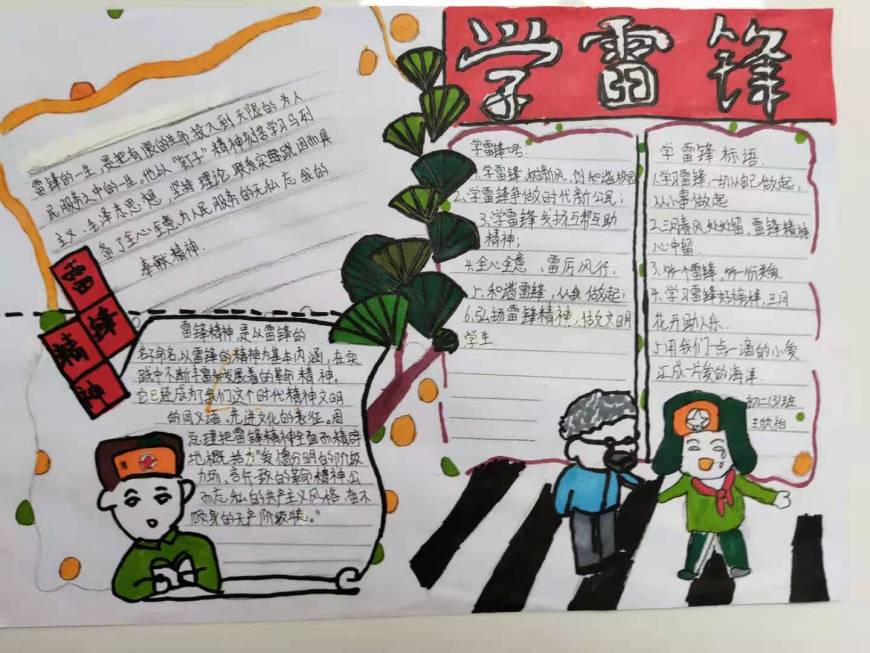 学雷锋
雷锋的一生，是把有限的生命投入到无限的为人
民服务之中的一生。他以"钉子"精神刻苦学习马列
主义、毛泽东思想，坚持理论联系实践，因而具
备了全心全意为人民服务的无私忘我的
奉献精神.
雷锋
精神
雷锋精神，是以雷锋的
名命名以雷锋的精神为基本内涵，在实
践中不断丰富和发展着的革命精神.
它已经成为了我们这个时代精神文明
的同义语、先进文化的表征。周
总理把雷锋精神全面而精辟
地概括为"爱憎分明的阶级
立场、言行一致的革命精神、公
而忘私的共产主义风格、奋不
顾身的无产阶级
学雷锋口号.
1.学雷锋，树新风，创和谐校园
2.学雷锋争做时代新公民；
3.学雷锋发扬互帮互助
精神；
4.全心全意、雷厉风行；
5.和谐雷锋，从我做起；
6.弘扬雷锋精神，做文明
学生.
学雷锋标语.
1.学习雷锋，一切从自己做起，
从小事做起
2.三月春风处处留，雷锋精神
心中留.
3.学习雷锋好榜样，三月
花开助人乐.
5.用我们一点一滴的小爱
汇成一片爱的海洋.
初二(3)班
王欣怡